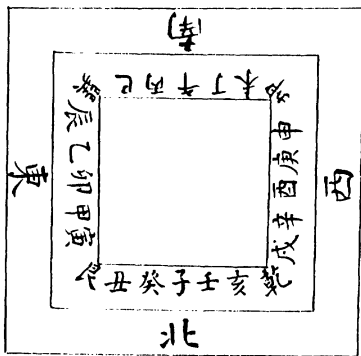 南
巽巳丙午丁未坤
東
辰乙卯甲寅
申庚酉辛戌
西
艮丑癸子壬亥乾
北